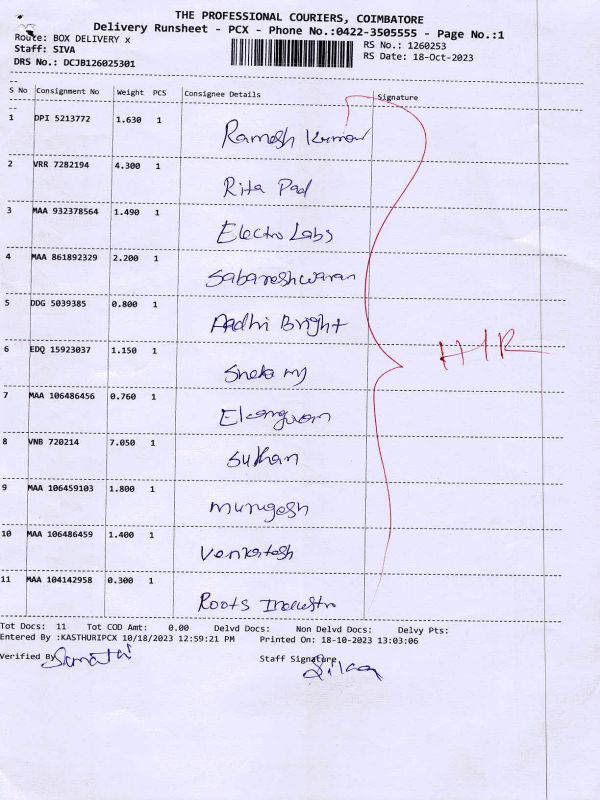 THE PROFESSIONAL COURIERS, COIMBATORE
Delivery Runsheet - PCX - Phone No.:0422-3505555 - Page No.:1
Route: BOX DELIVERY x RS No.: 1260253
Staff: SIVA RS Date: 18-Oct-2023
DRS No.: DCJB126025301
S No Consignment No Weight PCS Consignee Details Signature
1 DPI 5213772 1.630 1 Ramesh Kumar
2 VRR 7282194 4.300 1 Rita Pad
3 MAA 932378564 1.490 1 Electro Labs
4 MAA 861892329 2.200 1 Sabareshwaran
5 DDG 5039385 0.800 1 Aadhi Bright
6 EDQ 15923037 1.150 1
7 MAA 106486456 0.760 1
8 VNB 720214 7.050 1 Suthan
9 MAA 106459103 1.800 1 Murugesh
10 MAA 106486459 1.400 1 Venkatesh
11 MAA 104142958 0.300 1 Roots
Tot Docs: 11 Tot COD Amt: 0.00 Delvd Docs: Non Delvd Docs: Delvy Pts:
Entered By :KASTHURIPCX 10/18/2023 12:59:21 PM Printed On: 18-10-2023 13:03:06
Verified By Staff Signature